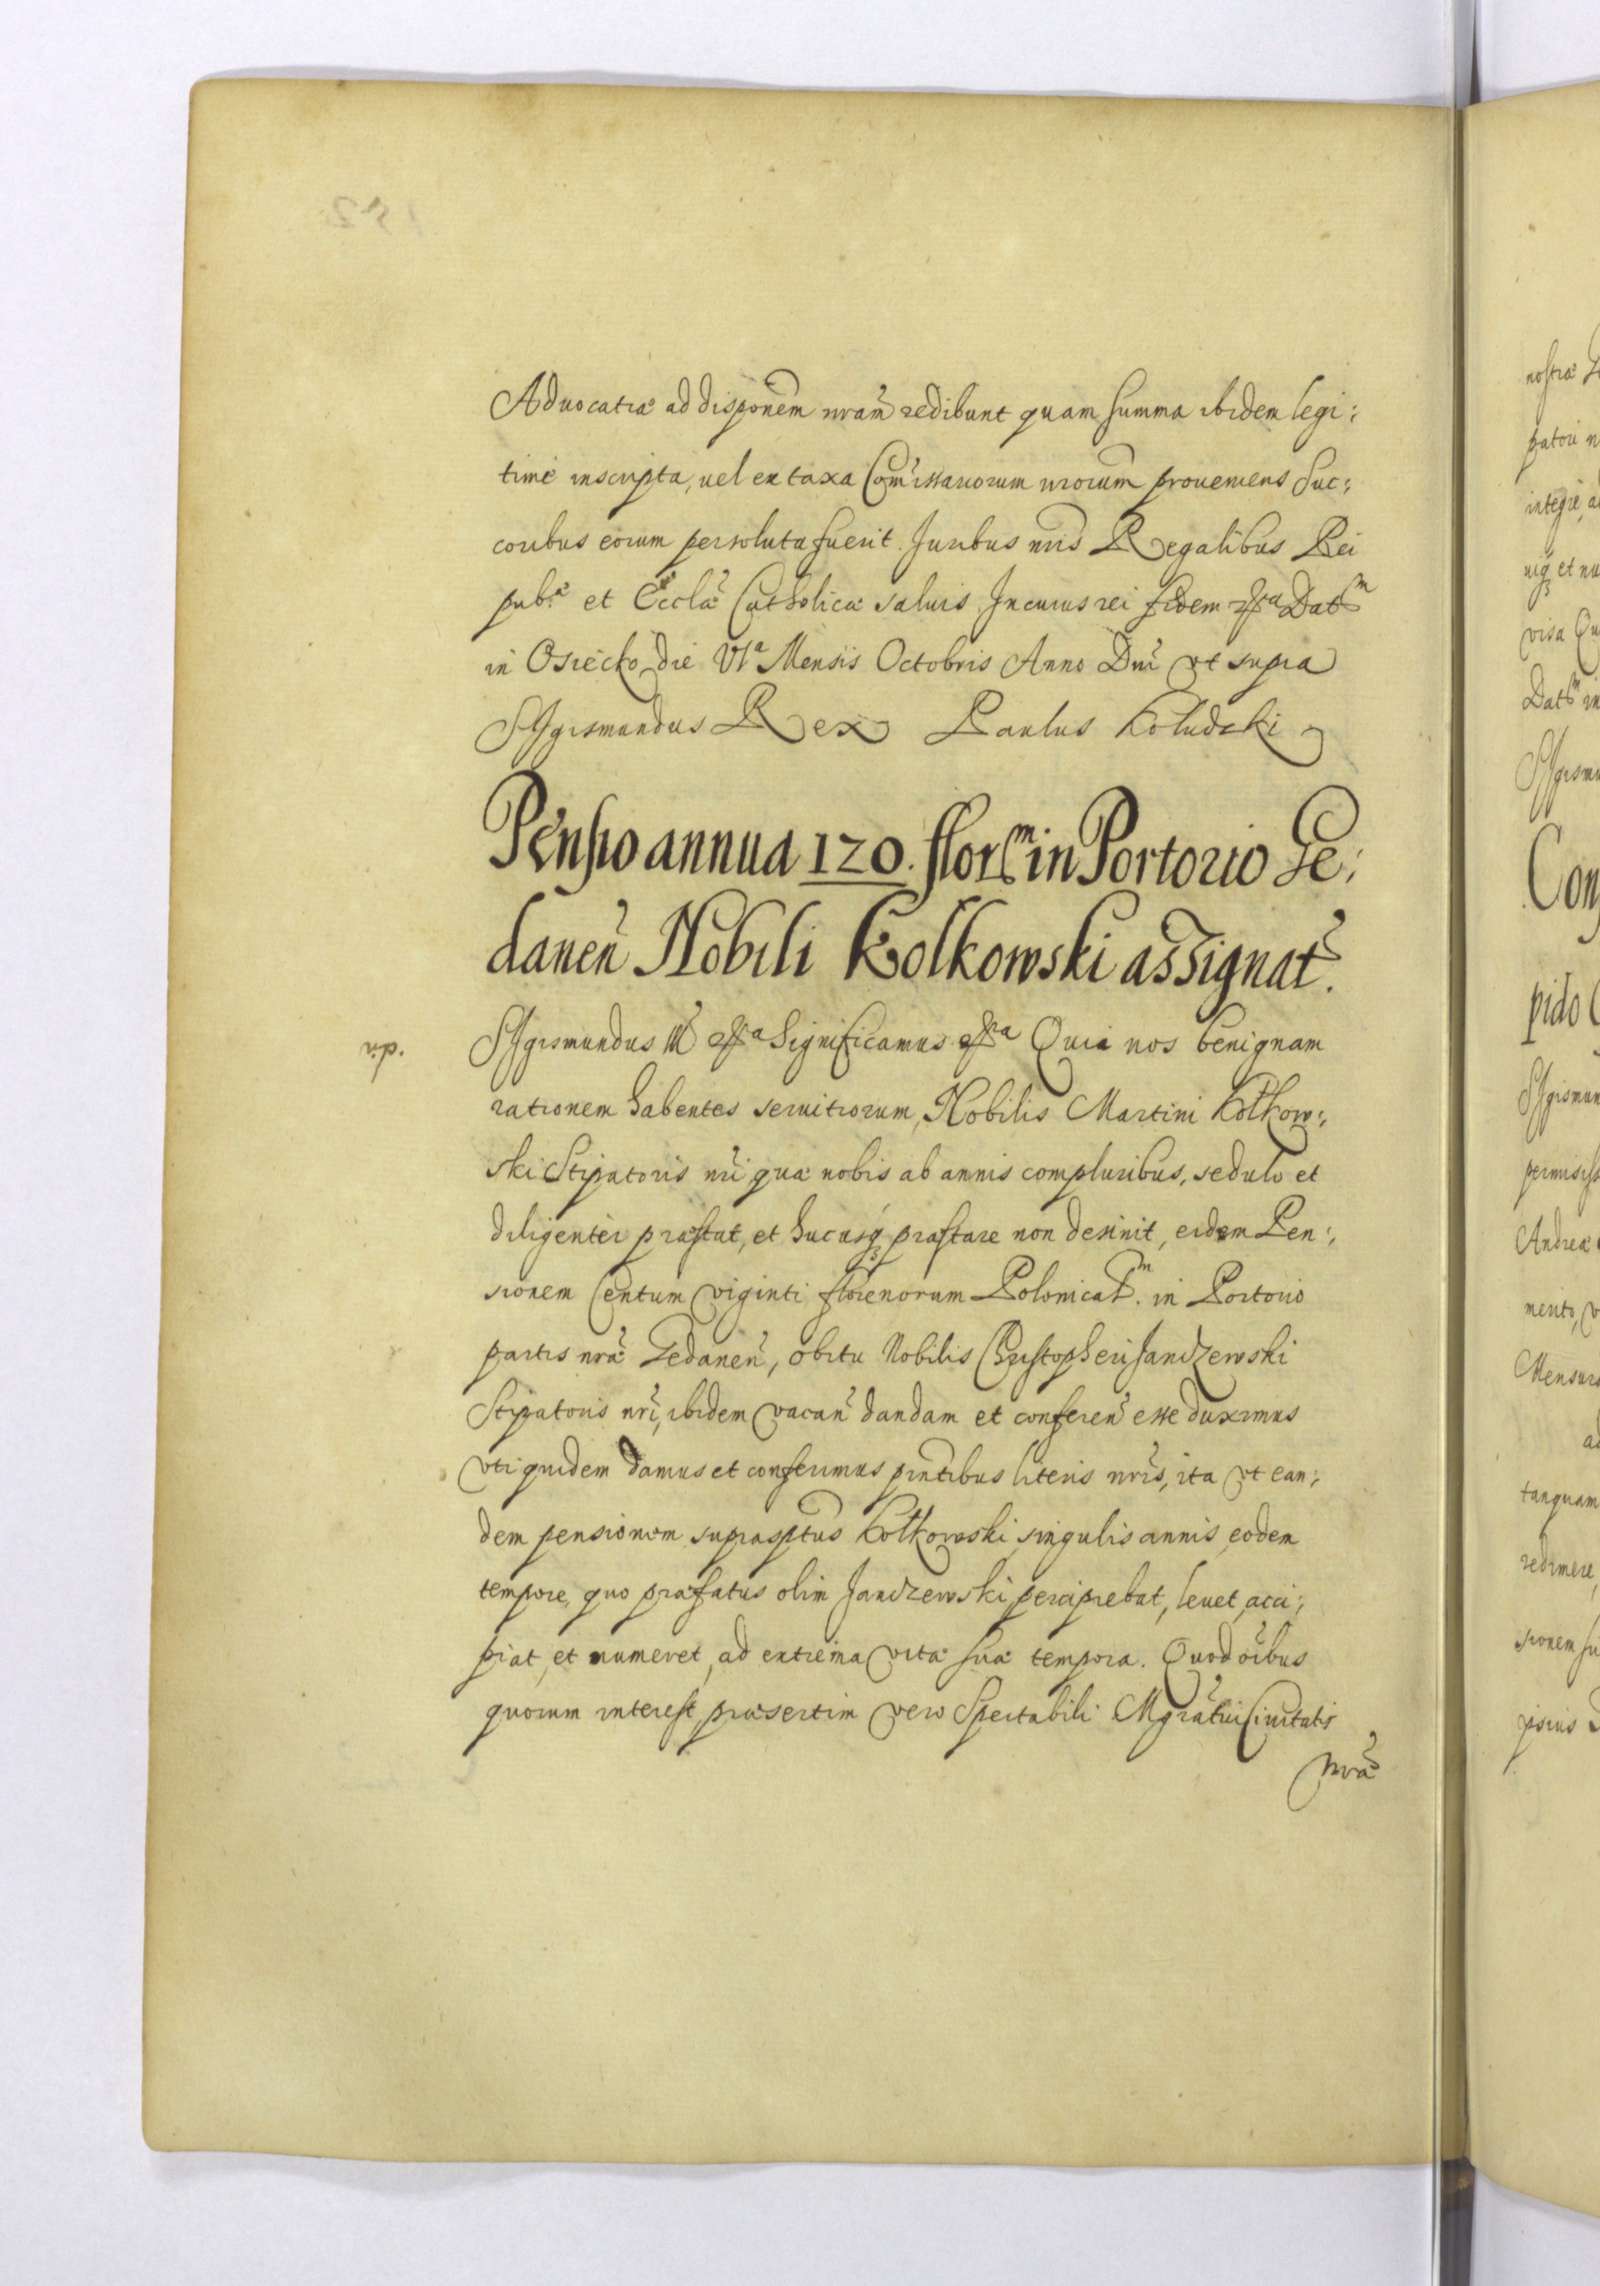 Aduocatiæ ad disponem nram redibunt quam summa ibidem legi:
time inscripta, uel ex taxa Com̃issariorum nrorum proueniens Suc:
coribus eorum persoluta fuerit. Juribus nris Regalibus Rei
pubcæ et Ecclæ Catholicæ saluis. In cuius rei fidem &ra Datm
in Osiecko die VIa Mensis Octobris Anno Dni vt supra
Sigismundus Rex Paulus Koludzki
Pensio annua 120. florm in Portorio Ge:
danen Nobili Kołkowski assignat.
Sigismundus III &ra Significamus &ra Quia nos benignam
rationem habentes seruitiorum, Nobilis Martini Kołkow:
ski Stipatoris nri quæ nobis ab annis compluribus, sedulo et
diligenter præstat, et hucusq præstare non desinit, eidem Pen:
sionem Centum viginti florenorum Polonicalm. in Portorio
partis nræ Gedanen, obitu Nobilis Christopheri Jandzewski
Stipatoris nri, ibidem vacan dandam et conferen esse duximus
vti quidem damus et conferimus pntibus literis nris, ita vt ean:
dem pensionem suprasptus Kołkowski singulis annis eodem
tempore, quo præfatus olim Jandzewski percipiebat, leuet, acci:
piat, et numeret, ad extrema vitæ suæ tempora. Quod oibus
quorum interest, præsertim vero Spectabili Mgratui Ciuitatis
nræ